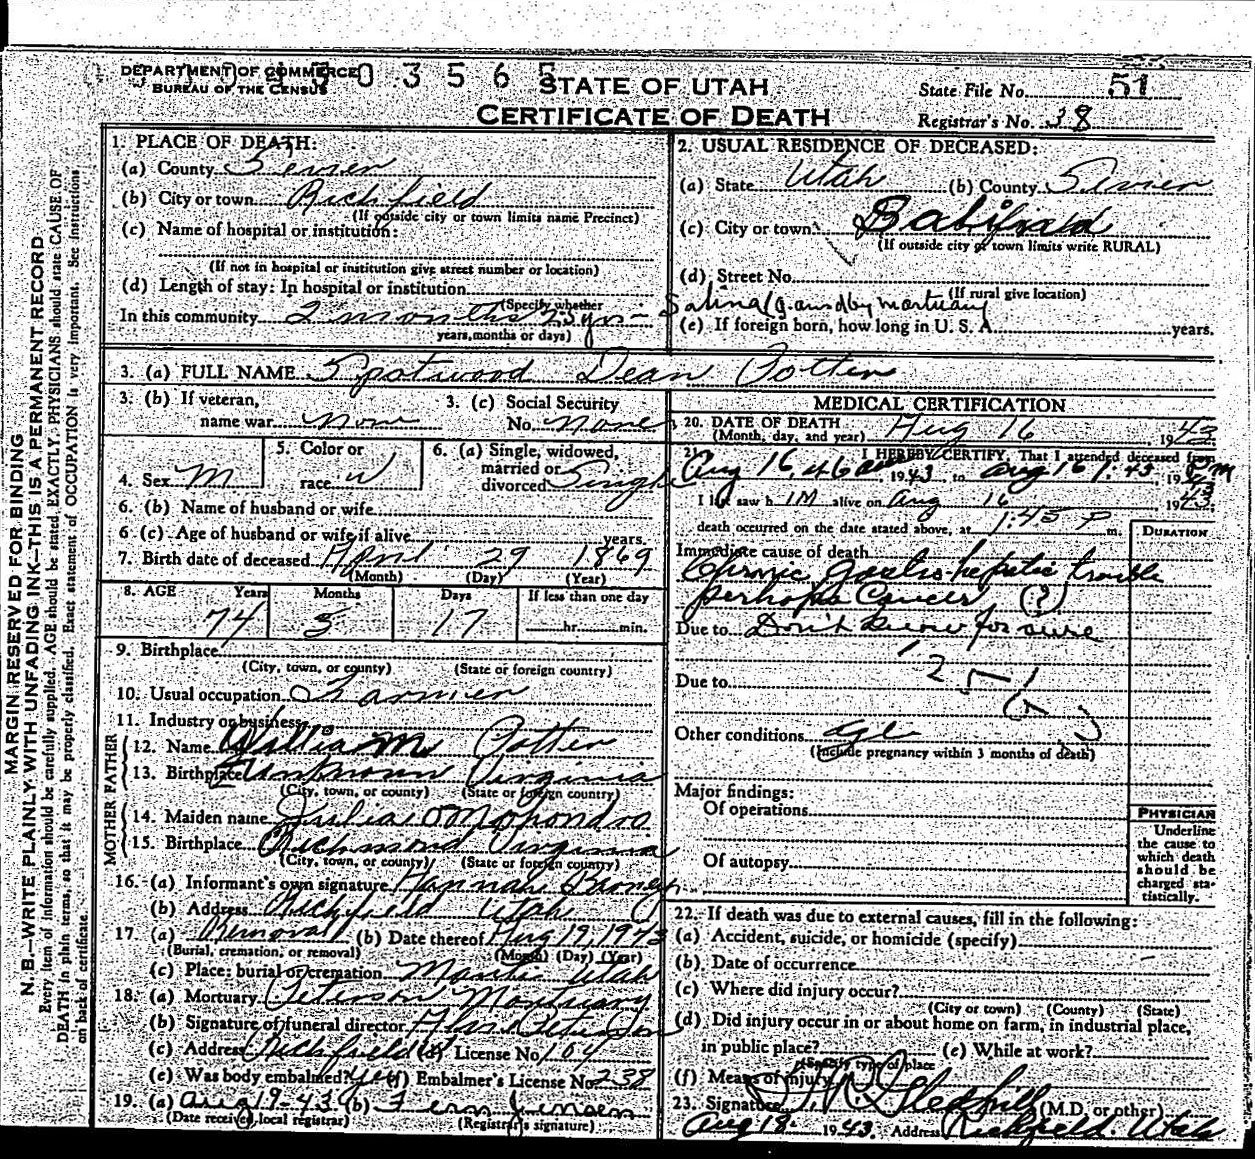 DEPARTMENT OF COMMERCE
BUREAU OF THE CENSUS
0 3 5 6 5
STATE OF UTAH
CERTIFICATE OF DEATH
State File No. 51
Registrar's No. 38
MARGIN RESERVED FOR BINDING
N. B.—WRITE PLAINLY WITH UNFADING INK—THIS IS A PERMANENT RECORD
Every item of information should be carefully supplied. AGE should be stated EXACTLY. PHYSICIANS should state CAUSE OF
DEATH in plain terms, so that it may be properly classified. Exact statement of OCCUPATION is very important. See instructions
on back of certificate.
1. PLACE OF DEATH:
(a) County Sevier
(b) City or town Richfield
(If outside city or town limits name Precinct)
(c) Name of hospital or institution:
(If not in hospital or institution give street number or location)
(d) Length of stay: In hospital or institution
(Specify whether
In this community 2 months
years, months or days)
2. USUAL RESIDENCE OF DECEASED:
(a) State Utah (b) County Sevier
(c) City or town
(If outside city or town limits write RURAL)
(d) Street No.
(If rural give location)
Salina by mortuary
(e) If foreign born, how long in U. S. A. years.
3. (a) FULL NAME Spotwood Dean Potter
3. (b) If veteran,
name war None
3. (c) Social Security
No. None
4. Sex M
5. Color or
race W
6. (a) Single, widowed,
married or
divorced Single
6. (b) Name of husband or wife
6 (c) Age of husband or wife if alive years.
7. Birth date of deceased April 29 1869
(Month) (Day) (Year)
8. AGE Years Months Days If less than one day
74 3 17 hr. min.
9. Birthplace
(City, town, or county) (State or foreign country)
10. Usual occupation Farmer
11. Industry or business
FATHER
12. Name William Potter
13. Birthplace Unknown Virginia
(City, town, or county) (State or foreign country)
MOTHER
14. Maiden name Julia Mohondro
15. Birthplace Richmond Virginia
(City, town, or county) (State or foreign country)
16. (a) Informant's own signature Hannah Barney
(b) Address Richfield Utah
17. (a) Removal (b) Date thereof Aug 19, 1943
(Burial, cremation, or removal) (Month) (Day) (Year)
(c) Place: burial or cremation Manti Utah
18. (a) Mortuary Peterson Mortuary
(b) Signature of funeral director Peterson
(c) Address Richfield (d) License No. 104
(e) Was body embalmed? Yes (f) Embalmer's License No. 238
19. (a) Aug 19-43 (b) Fern Jensen
(Date received local registrar) (Registrar's signature)
MEDICAL CERTIFICATION
20. DATE OF DEATH
(Month, day, and year) Aug 16 1943
21. I HEREBY CERTIFY, That I attended deceased from
Aug 16, 1943, to Aug 16 1:45 PM 1943
I last saw h IM alive on Aug 16 1943
death occurred on the date stated above, at 1:45 P m.
DURATION
Immediate cause of death
Chronic gastro-hepatic trouble
perhaps Cancer (?)
Due to Don't know for sure
Due to
Other conditions age
(Include pregnancy within 3 months of death)
Major findings:
Of operations
Of autopsy
PHYSICIAN
Underline
the cause to
which death
should be
charged sta-
tistically.
22. If death was due to external causes, fill in the following:
(a) Accident, suicide, or homicide (specify)
(b) Date of occurrence
(c) Where did injury occur?
(City or town) (County) (State)
(d) Did injury occur in or about home on farm, in industrial place,
in public place? (e) While at work?
(Specify type of place
(f) Means of injury
23. Signature Gledhill (M.D. or other)
Aug 18 1943. Address Richfield Utah